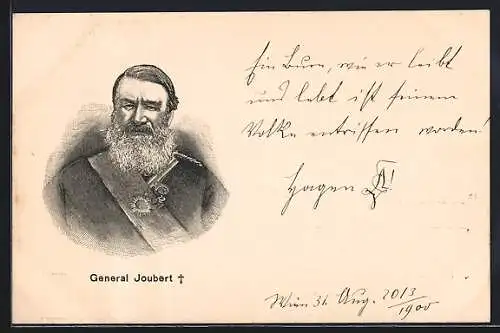 Ein Bure, wie er leibt
und lebt ist seinem
Volke entrissen worden!
Hagen
General Joubert †
Wien 31. Aug. 2013/1900